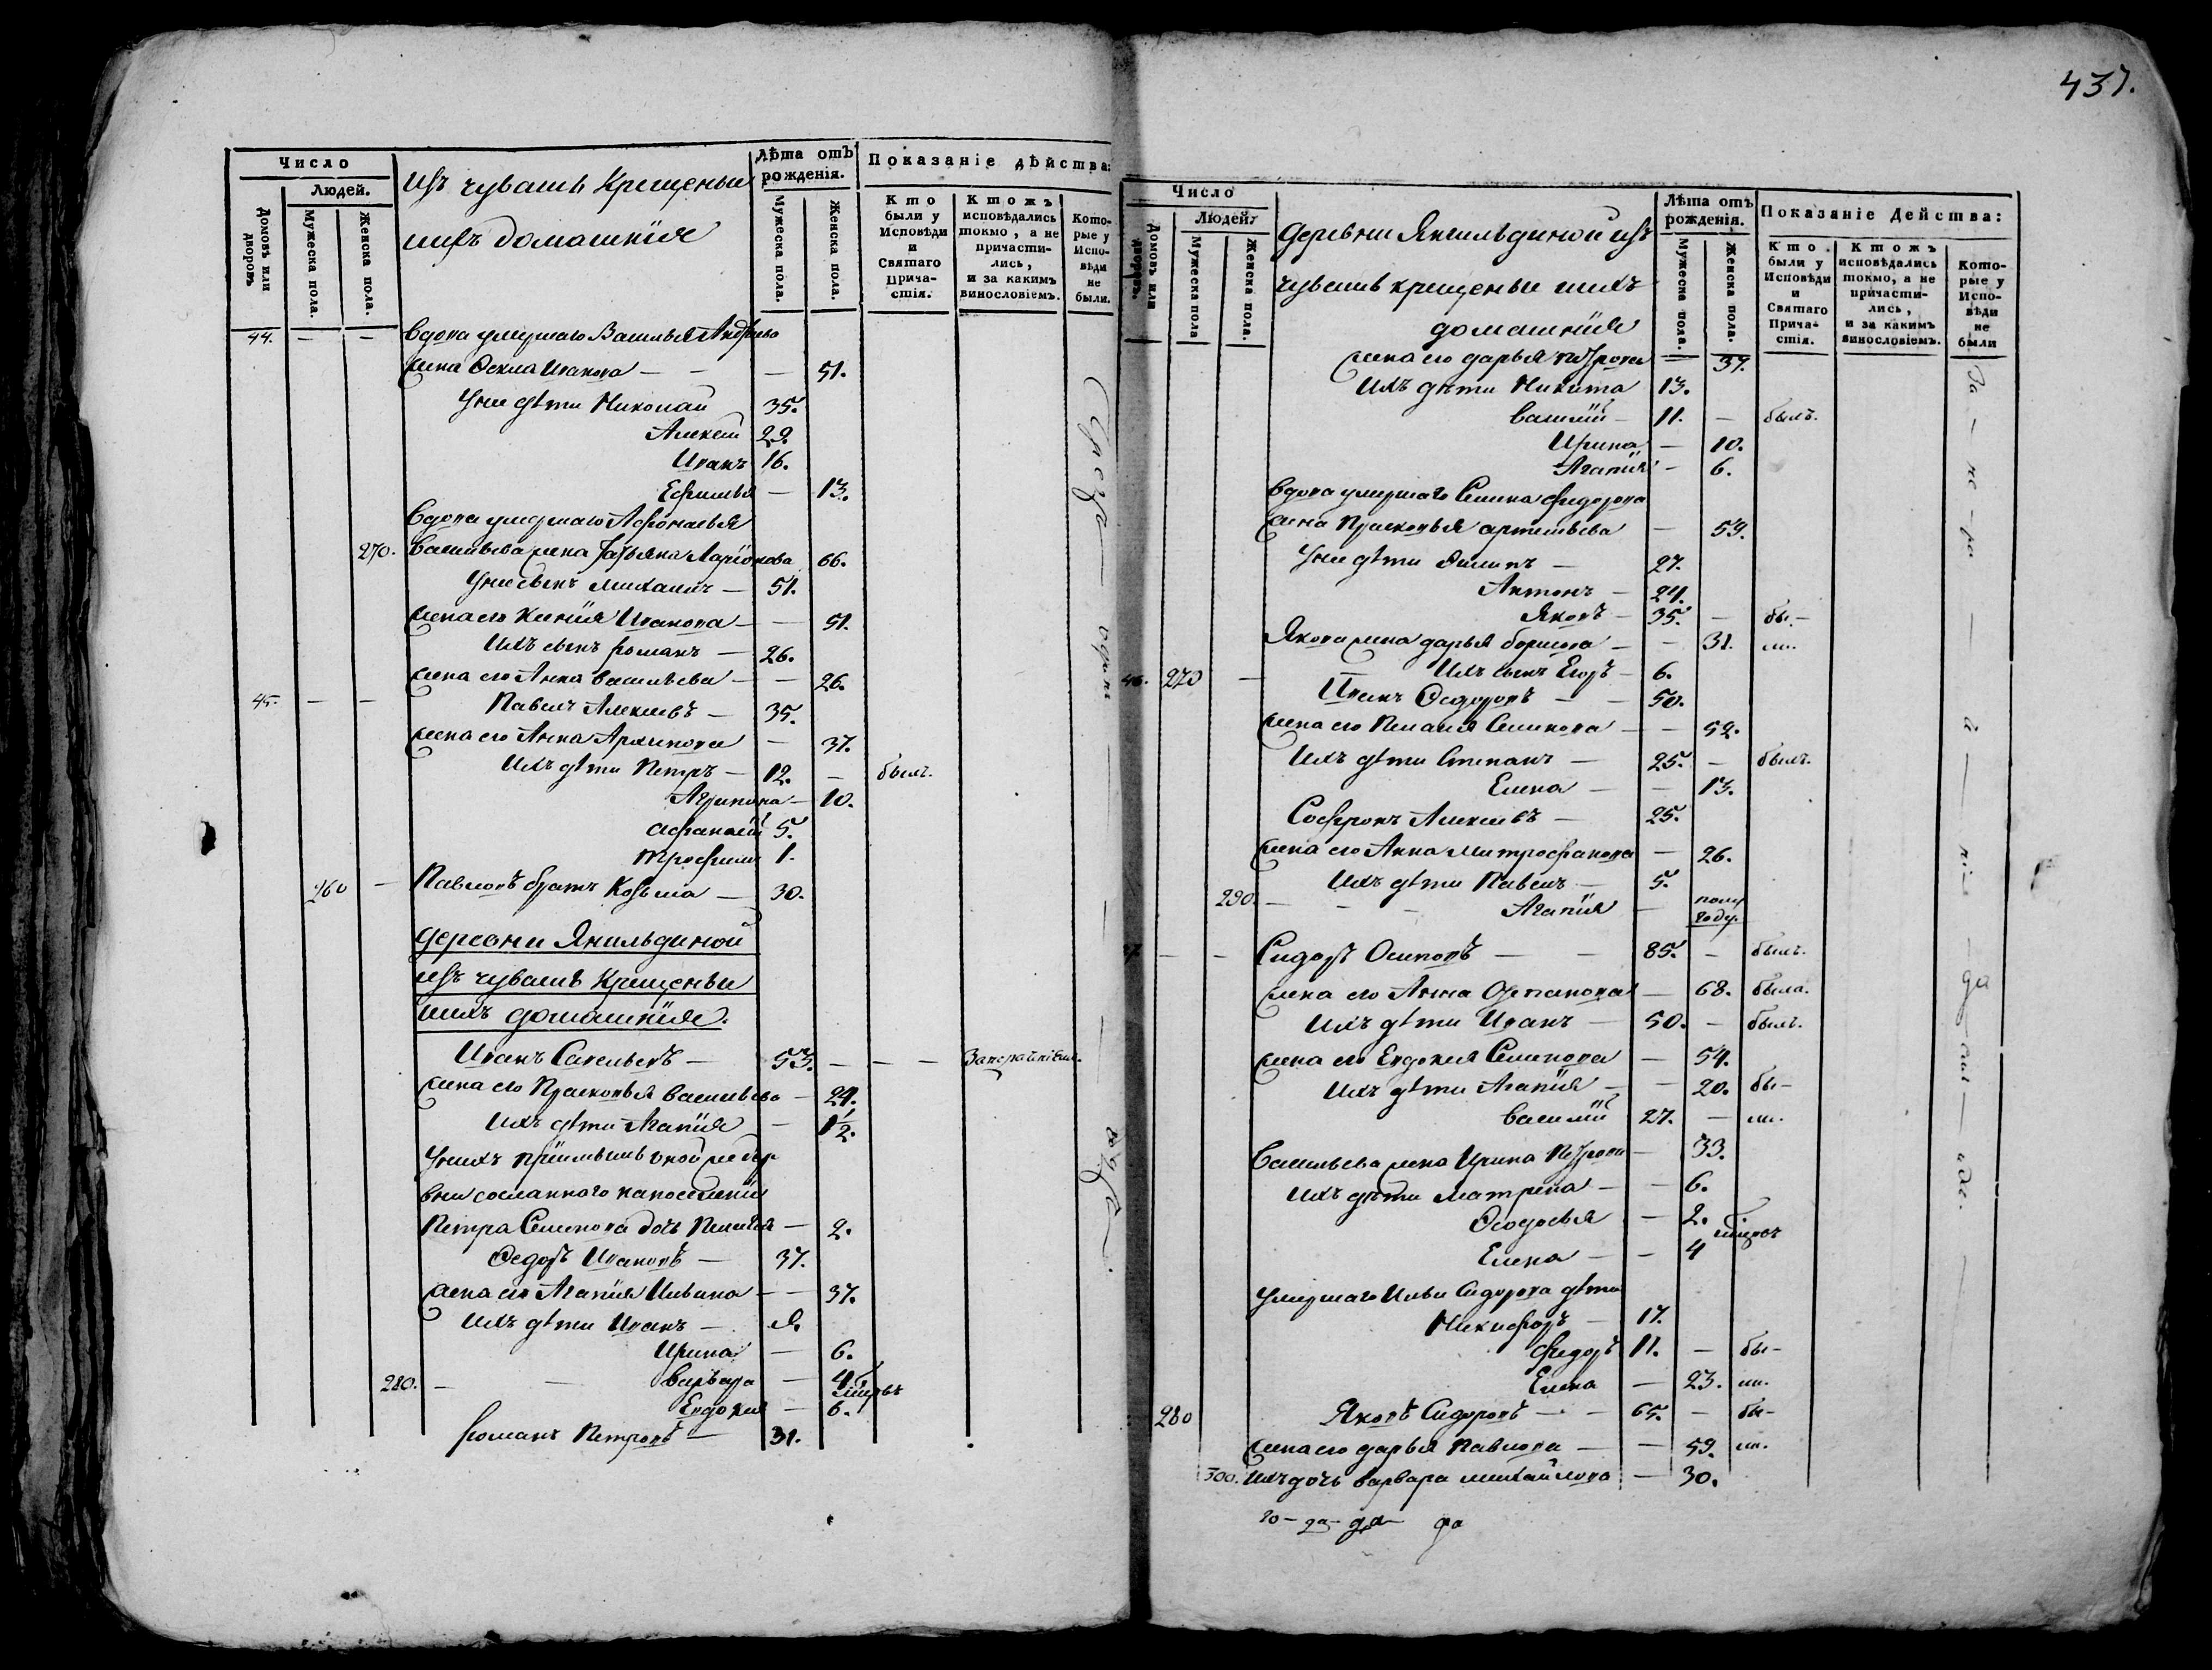 437.
Число
Людей.
Домовъ или дворовъ
Мужеска пола.
Женска пола.
Изъ чувашъ крещеныи
ихъ домашнїя
Лѣта отъ рожденїя.
Мужеска пола.
Женска пола.
Показанїе дѣйства:
Кто были у Исповѣди и Святаго Прича-стїя.
Ктожъ исповѣдались токмо, а не причасти-лись, и за какимъ винословїемъ.
Кото-рые у Испо-вѣди не были.
44. — — Вдова умершаго Василья Андрѣева
жена Ѳекла Иванова — — — 51.
Унеи дѣти Николай 35.
Алексѣй 29.
Иванъ 16.
Ефимья — 13.
Вдова умершаго Афонасья
270. Васильева жена Татьяна Ларїонова 66.
Унеи сынъ Михаилъ — 51.
жена его Ксенїя Иванова — — 51.
Ихъ сынъ Романъ — 26.
жена его Анна Васильева — — 26.
45. — — Павелъ Алексѣевъ — 35.
жена его Анна Архипова — 37.
Ихъ дѣти Петръ — 12. — былъ.
Агрипина — 10.
Афанасїй 5.
Трофимъ 1.
260 — Павловъ братъ Козьма — 30.
Деревни Янгильдиной
изъ чувашъ крещеныи
ихъ домашнїя.
Иванъ Савельевъ — 53. — — —
жена его Прасковья Васильева — 24.
Ихъ дѣти Агапїя — 1/2.
Петра Семенова дочь — 2.
Ѳедоръ Ивановъ — 37.
жена его Агапїя Ильина — — 37.
Ихъ дѣти Иванъ —
Ирина — 6.
280. — — Варвара — 4
Евдокия — 6.
Романъ Петровъ — 31.
Число
Людей.
Домовъ или дворовъ.
Мужеска пола
Женска пола.
Деревни Янгильдиной изъ
чувашъ крещеныи ихъ
домашнїя
Лѣта отъ рожденїя.
Мужеска пола.
Женска пола.
Показанїе Действа:
Кто были у Исповѣди и Святаго Прича-стїя.
Ктожъ исповѣдались токмо, а не причасти-лись, и за какимъ винословїемъ.
Кото-рые у Испо-вѣди не были
жена его Дарья Петрова — 37.
Ихъ дѣти Никита 13.
Василїй — 11. — былъ.
Ирина — 10.
Агапїя — 6.
Вдова умершаго Семена Федорова
жена Прасковья Артемьева — 59.
Унеи дѣти Филипъ — 27.
Антонъ — 24.
Яковъ — 35. — бы-
Якова жена Дарья Борисова — — 31. ли.
46. 270 — Ихъ сынъ Егоръ — 6.
Иванъ Ѳедоровъ — — 50.
жена его Пелагия Семенова — — 52.
Ихъ дѣти Степанъ — 25. — былъ.
Елена — — 13.
Софронъ Алексѣевъ — 25.
жена его Анна Митрофанова — 26.
Ихъ дѣти Павелъ — 5.
290. — — — Агапїя — полу году.
47. — — Сидоръ Осиповъ — — 85. — былъ.
жена его Анна — 68. была.
Ихъ дѣти Иванъ — 50. — былъ.
жена его Евдокия Семенова — 54.
Ихъ дѣти Агапїя — — 20. бы-
Василїй 27. — ли.
Васильева жена Ирина Петрова — 33.
Ихъ дѣти Матрена — — 6.
Ѳеодосья — 2.
Елена — — 4
Умершаго Ильи Сидорова дѣти
Никифоръ — 17.
Федоръ 11. — бы-
Елена — 23. ли.
280 Яковъ Сидоровъ — — 65. — бы-
жена его Дарья Павлова — — 59. ли.
300. Ихъ дочь Варвара Михайлова — 30.